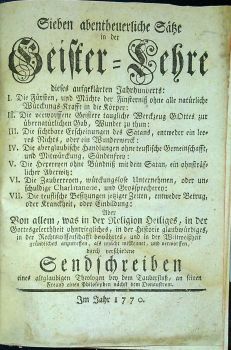 Sieben abentheuerliche Sätze
in der
Geister-Lehre
dieses aufgeklärten Jahrhunderts:
I. Die Fürsten, und Mächte der Finsterniß ohne alle natürliche
Würckungs-Krafft in die Körper:
II. Die verworffene Geistere taugliche Werckzeug GOttes zur
übernatürlichen Gab, Wunder zu thun:
III. Die sichtbare Erscheinungen des Satans, entweder ein lee-
res Nichts, oder ein Wunderwerck:
IV. Die aberglaubische Handlungen ohne teuflische Gemeinschafft,
und Mitwürckung, Sündenfrey:
V. Die Hexereyen ohne Bündniß mit dem Satan, ein ohnsträf-
licher Aberwitz:
VI. Die Zaubereyen, würckungslose Unternehmen, oder un-
schuldige Charlatanerie, und Großsprecherey:
VII. Die teuflische Besitzungen jetziger Zeiten, entweder Betrug,
oder Kranckheit, oder Einbildung:
Aber
Von allem, was in der Religion Heiliges, in der
Gottesgelertheit ohntriegliches, in der Historie glaubwürdiges,
in der Rechtswissenschaft bewährtes, und in der Weltweisheit
gründliches angetroffen, als irrig und verworffen,
durch verschiedene
Sendschreiben
eines altglaubigen Theologen bey dem Tauberfluß, an seinen
Freund einen Philosophen nächst dem Donaustrom.
Im Jahr 1770.